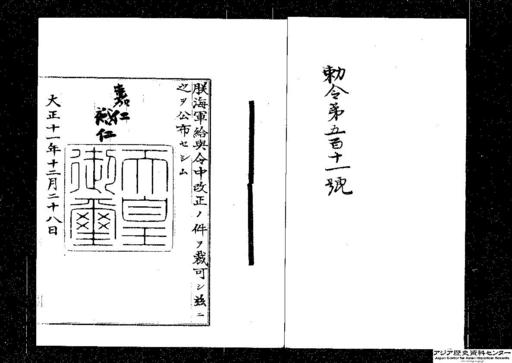 勅令第五百十一號
朕海軍給與令中改正ノ件ヲ裁可シ茲ニ
之ヲ公布セシム
嘉仁
裕仁
天皇
御璽
大正十一年十二月二十八日
アジア歴史資料センター
Japan Center for Asian Historical Records